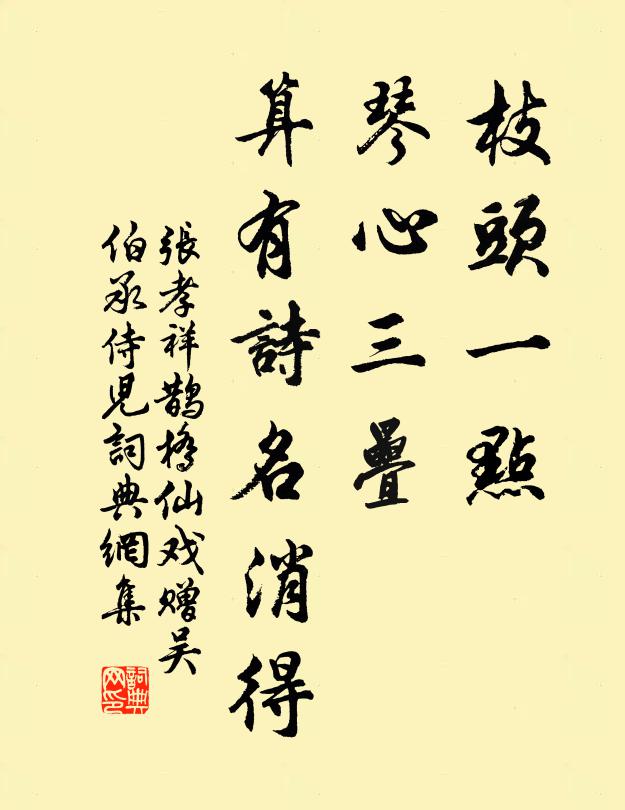 枝頭一點
琴心三疊
算有詩名消得
張孝祥鵲橋仙戏赠吴
伯承侍児詞典網集
詞典
网印